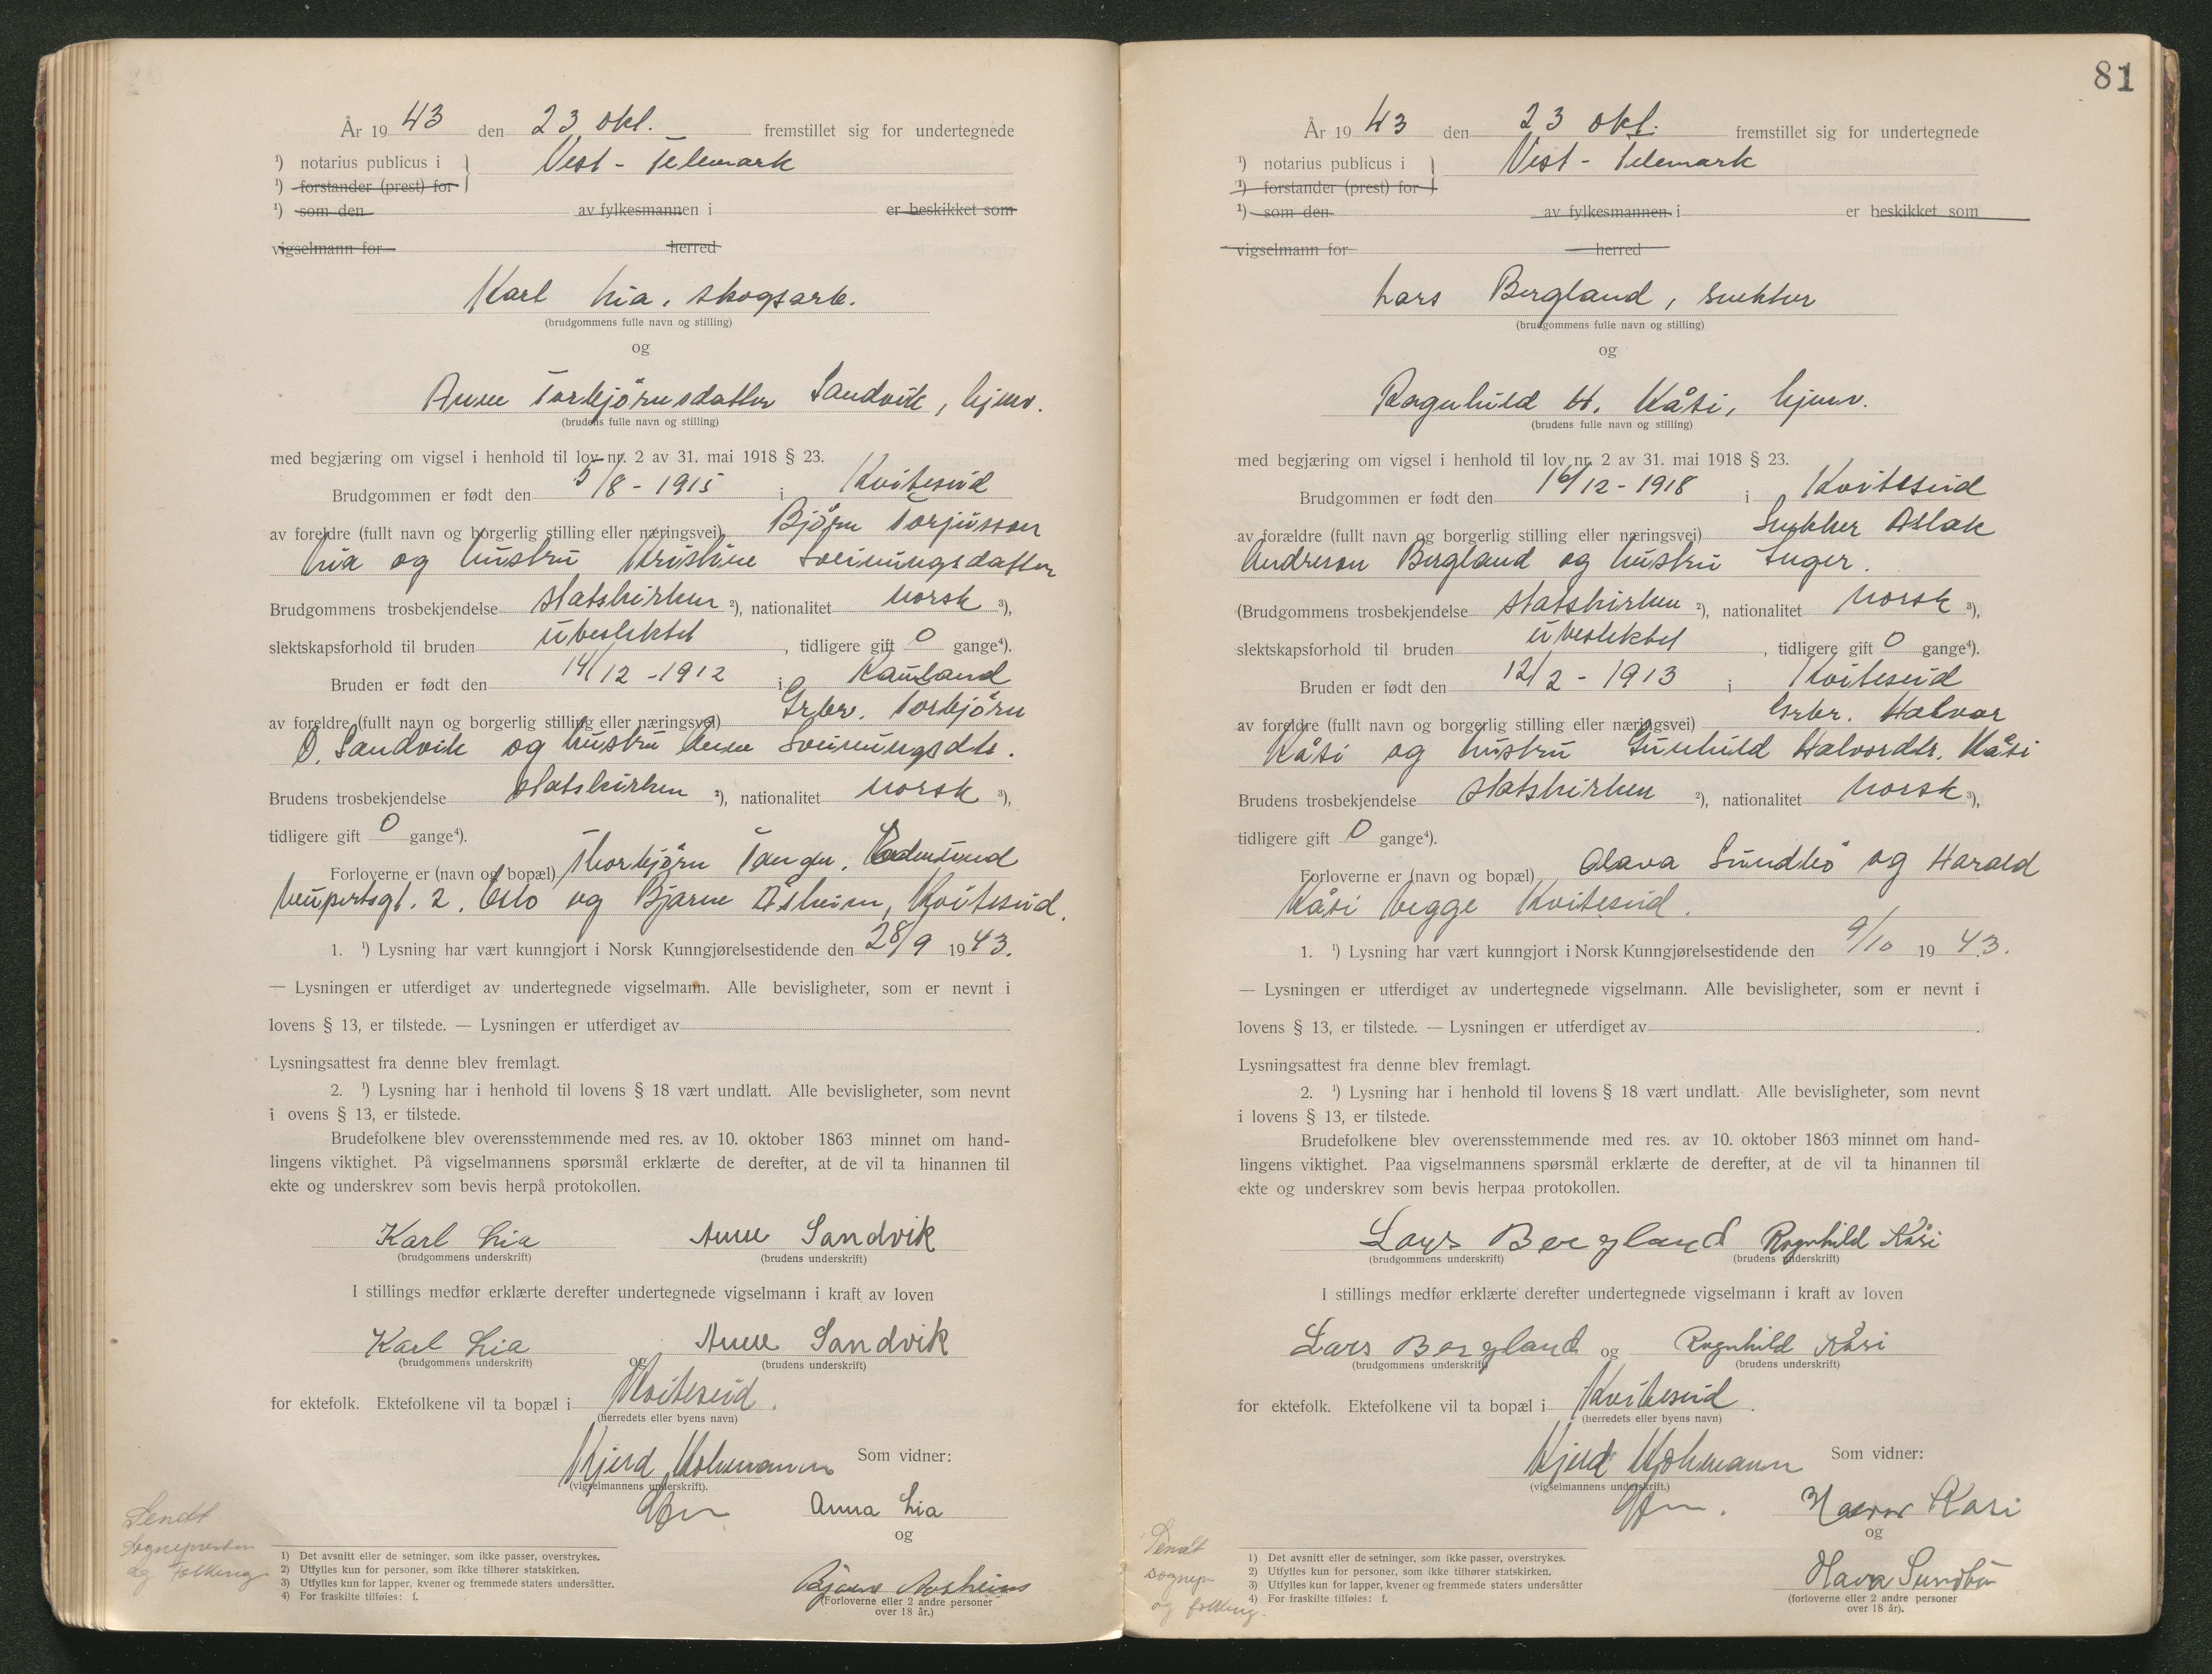 År 1943 den 23 okt. fremstillet sig for undertegnede
¹) notarius publicus i Vest-Telemark
¹) forstander (prest) for
¹) som den av fylkesmannen i er beskikket som
vigselmann for herred
Karl Lia, skogsarb.
(brudgommens fulle navn og stilling)
og
Anne Torbjörnsdatter Sandvik, hjmv.
(brudens fulle navn og stilling)
med begjæring om vigsel i henhold til lov nr. 2 av 31. mai 1918 § 23.
Brudgommen er født den 5/8-1915 i Kviteseid
av foreldre (fullt navn og borgerlig stilling eller næringsvei) Björn Torjusson
Lia og hustru Kristine Sveinungsdatter
Brudgommens trosbekjendelse statskirken ²), nationalitet norsk ³),
slektskapsforhold til bruden ubeslektet, tidligere gift 0 gange⁴).
Bruden er født den 14/12-1912 i Rauland
av foreldre (fullt navn og borgerlig stilling eller næringsvei) Grbr. Torbjörn
O. Sandvik og hustru Anne Sveinungsdtr.
Brudens trosbekjendelse statskirken ²), nationalitet norsk ³),
tidligere gift 0 gange⁴).
Forloverne er (navn og bopæl) Thorbjörn Tangen,
2, Oslo og Bjarne Åsheim, Kviteseid.
1. ¹) Lysning har vært kunngjort i Norsk Kunngjørelsestidende den 28/9 1943.
— Lysningen er utferdiget av undertegnede vigselmann. Alle bevisligheter, som er nevnt i
lovens § 13, er tilstede. — Lysningen er utferdiget av
Lysningsattest fra denne blev fremlagt.
2. ¹) Lysning har i henhold til lovens § 18 vært undlatt. Alle bevisligheter, som nevnt
i ovens § 13, er tilstede.
Brudefolkene blev overensstemmende med res. av 10. oktober 1863 minnet om hand-
lingens viktighet. På vigselmannens spørsmål erklærte de derefter, at de vil ta hinannen til
ekte og underskrev som bevis herpå protokollen.
Karl Lia Anne Sandvik
(brudgommens underskrift) (brudens underskrift)
I stillings medfør erklærte derefter undertegnede vigselmann i kraft av loven
Karl Lia og Anne Sandvik
(brudgommens underskrift) (brudens underskrift)
for ektefolk. Ektefolkene vil ta bopæl i Kviteseid.
(herredets eller byens navn)
Som vidner:
(vigselmannens underskrift).
Anna Lia
og
Bjarne Aasheim
(Forloverne eller 2 andre personer
over 18 år.)
Sendt
Sognepresten
og Folkereg.
1) Det avsnitt eller de setninger, som ikke passer, overstrykes.
2) Utfylles kun for personer, som ikke tilhører statskirken.
3) Utfylles kun for lapper, kvener og fremmede staters undersåtter.
4) For fraskilte tilføies: f.
81
År 1943 den 23 okt. fremstillet sig for undertegnede
¹) notarius publicus i Vest-Telemark
¹) forstander (prest) for
¹) som den av fylkesmannen i er beskikket som
vigselmann for herred
Lars Bergland, snekker
(brudgommens fulle navn og stilling)
og
Ragnhild H. Kåsi, hjmv.
(brudens fulle navn og stilling)
med begjæring om vigsel i henhold til lov nr. 2 av 31. mai 1918 § 23.
Brudgommen er født den 16/12-1918 i Kviteseid
av forældre (fullt navn og borgerlig stilling eller næringsvei) Snekker Aslak
Andreson Bergland og hustru Inger.
(Brudgommens trosbekjendelse statskirken ²), nationalitet norsk ³),
slektskapsforhold til bruden ubeslektet, tidligere gift 0 gange⁴).
Bruden er født den 12/2-1913 i Kviteseid
av foreldre (fullt navn og borgerlig stilling eller næringsvei) Grbr. Halvor
Kåsi og hustru Gunhild Halvordtr. Kåsi
Brudens trosbekjendelse statskirken ²), nationalitet norsk ³),
tidligere gift 0 gange⁴).
Forloverne er (navn og bopæl) Olava Sundbö og Harald
Kåsi begge Kviteseid.
1. ¹) Lysning har vært kunngjort i Norsk Kunngjørelsestidende den 9/10 1943.
— Lysningen er utferdiget av undertegnede vigselmann. Alle bevisligheter, som er nevnt i
lovens § 13, er tilstede. — Lysningen er utferdiget av
Lysningsattest fra denne blev fremlagt.
2. ¹) Lysning har i henhold til lovens § 18 vært undlatt. Alle bevisligheter, som nevnt
i lovens § 13, er tilstede.
Brudefolkene blev overensstemmende med res. av 10. oktober 1863 minnet om hand-
lingens viktighet. Paa vigselmannens spørsmål erklærte de derefter, at de vil ta hinannen til
ekte og underskrev som bevis herpaa protokollen.
Lars Bergland Ragnhild Kåsi
(brudgommens underskrift) (brudens underskrift)
I stillings medfør erklærte derefter undertegnede vigselmann i kraft av loven
Lars Bergland og Ragnhild Kåsi
(brudgommens underskrift) (brudens underskrift)
for ektefolk. Ektefolkene vil ta bopæl i Kviteseid.
(herredets eller byens navn)
Som vidner:
(vigselmannens underskrift.)
Kåsi
og
Olava Sundbö
(forloverne eller 2 andre personer
over 18 år).
Sendt
sognepr
og folkereg.
1) Det avsnitt eller de setninger, som ikke passer, overstrykes.
2) Utfylles kun for personer, som ikke tilhører statskirken.
3) Utfylles kun for lapper, kvener og fremmede staters undersåtter
4) For fraskilte tilføies: f.